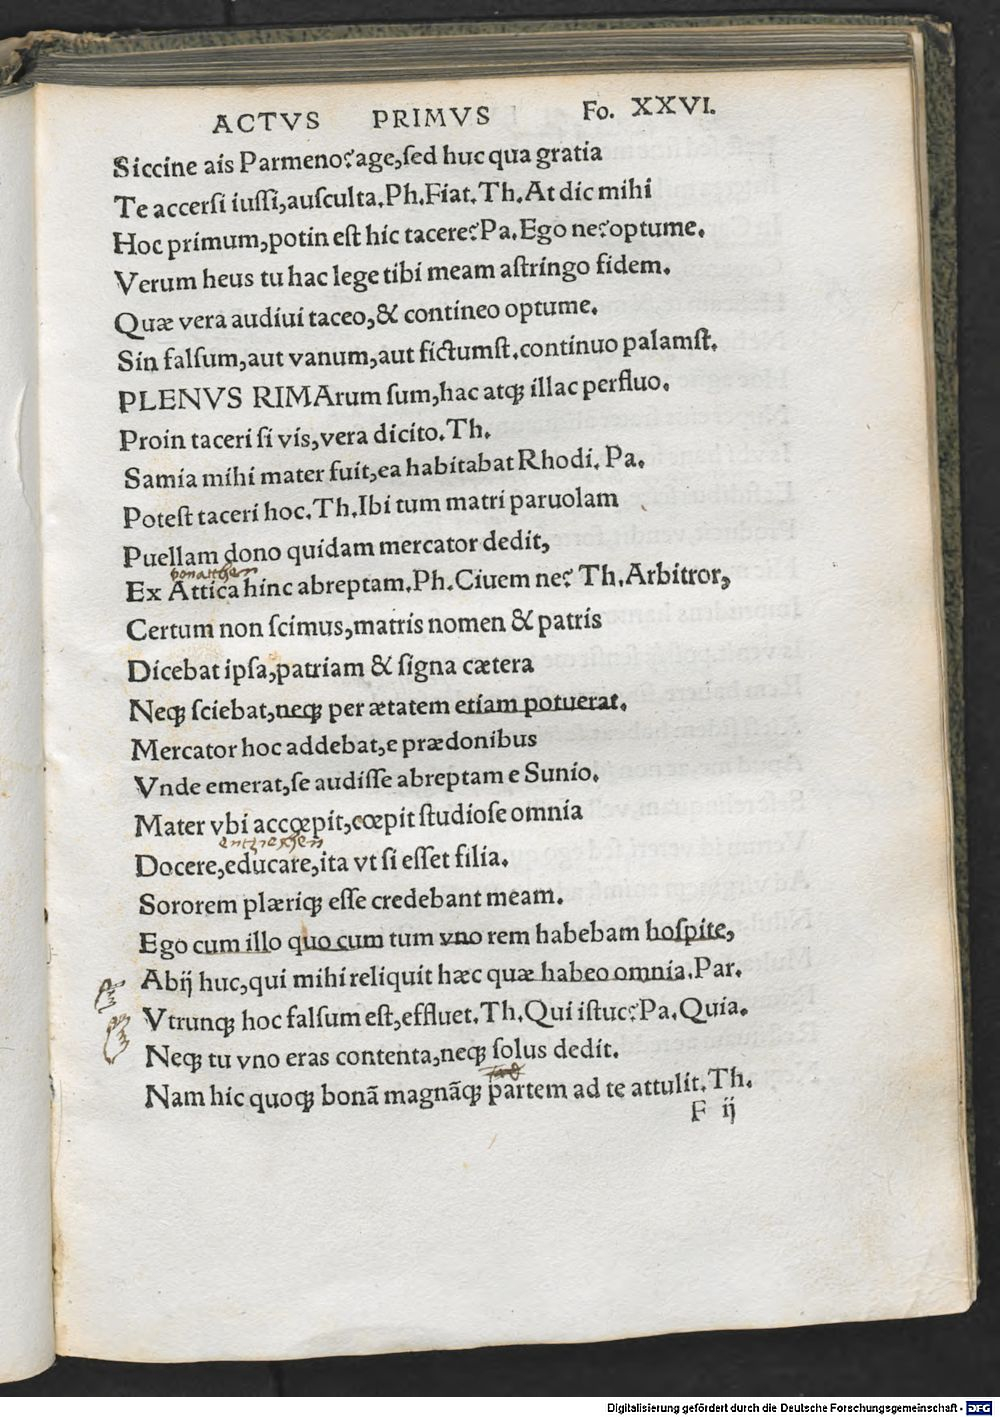 ACTVS PRIMVS Fo. XXVI.
Siccine ais Parmeno? age, ſed huc qua gratia
Te accerſi iuſſi, auſculta. Ph. Fiat. Th. At dic mihi
Hoc primum, potin eſt hic tacere? Pa. Ego ne? optume.
Verum heus tu hac lege tibi meam aſtringo fidem.
Quæ vera audiui taceo, & contineo optume.
Sin falſum, aut vanum, aut fictumſt. continuo palamſt.
PLENVS RIMArum ſum, hac atqꝫ illac perfluo.
Proin taceri ſi vis, vera dicito. Th.
Samia mihi mater fuit, ea habitabat Rhodi. Pa.
Poteſt taceri hoc. Th. Ibi tum matri paruolam
Puellam dono quidam mercator dedit,
Ex Attica hinc abreptam. Ph. Ciuem ne? Th. Arbitror,
Certum non ſcimus, matris nomen & patris
Dicebat ipſa, patriam & ſigna cætera
Neqꝫ ſciebat, neqꝫ per ætatem etiam potuerat.
Mercator hoc addebat, e prædonibus
Vnde emerat, ſe audiſſe abreptam e Sunio.
Mater vbi accœpit, cœpit ſtudioſe omnia
Docere, educare, ita vt ſi eſſet filia.
Sororem plæriqꝫ eſſe credebant meam.
Ego cum illo quo cum tum vno rem habebam hoſpite,
Abij huc, qui mihi reliquit hæc quæ habeo omnia. Par.
Vtrunqꝫ hoc falſum eſt, effluet. Th. Qui iſtuc? Pa. Quia.
Neqꝫ tu vno eras contenta, neqꝫ ſolus dedit.
Nam hic quoqꝫ bonā magnāqꝫ partem ad te attulit. Th.
F ij
Digitalisierung gefördert durch die Deutsche Forschungsgemeinschaft - DFG